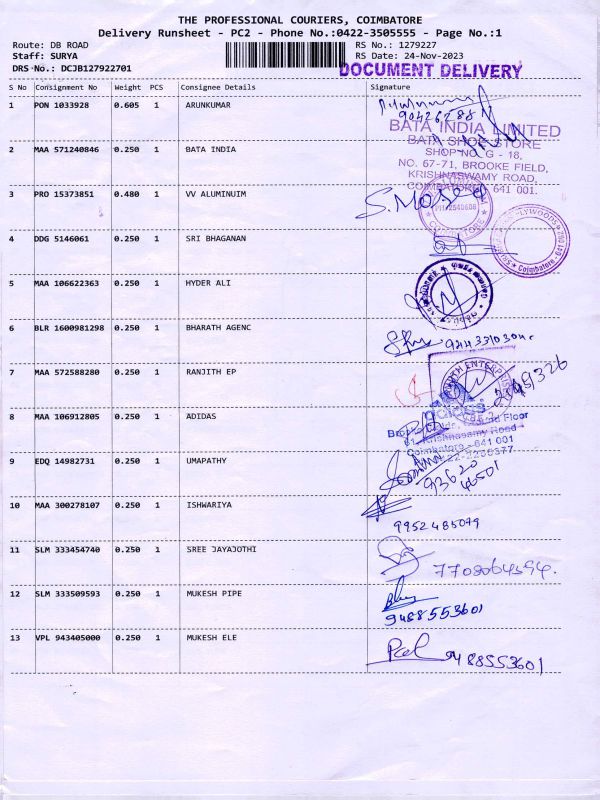 THE PROFESSIONAL COURIERS, COIMBATORE
Delivery Runsheet - PC2 - Phone No.:0422-3505555 - Page No.:1
Route: DB ROAD RS No.: 1279227
Staff: SURYA RS Date: 24-Nov-2023
DRS No.: DCJB127922701 DOCUMENT DELIVERY
S No Consignment No Weight PCS Consignee Details Signature
1 PON 1033928 0.605 1 ARUNKUMAR
BATA INDIA LIMITED
BATA SHOE STORE
2 MAA 571240846 0.250 1 BATA INDIA SHOP NO. G - 18,
NO. 67-71, BROOKE FIELD,
KRISHNASWAMY ROAD,
COIMBATORE - 641 001.
3 PRO 15373851 0.480 1 VV ALUMINUIM
4 DDG 5146061 0.250 1 SRI BHAGANAN
Coimbatore
5 MAA 106622363 0.250 1 HYDER ALI
6 BLR 1600981298 0.250 1 BHARATH AGENC
7 MAA 572588280 0.250 1 RANJITH EP
8 MAA 106912805 0.250 1 ADIDAS
Floor
Krishnasamy Road
Coimbatore - 641 001
9 EDQ 14982731 0.250 1 UMAPATHY
93620
46501
10 MAA 300278107 0.250 1 ISHWARIYA
9952485079
11 SLM 333454740 0.250 1 SREE JAYAJOTHI
12 SLM 333509593 0.250 1 MUKESH PIPE
9488553601
13 VPL 943405000 0.250 1 MUKESH ELE
9488553601